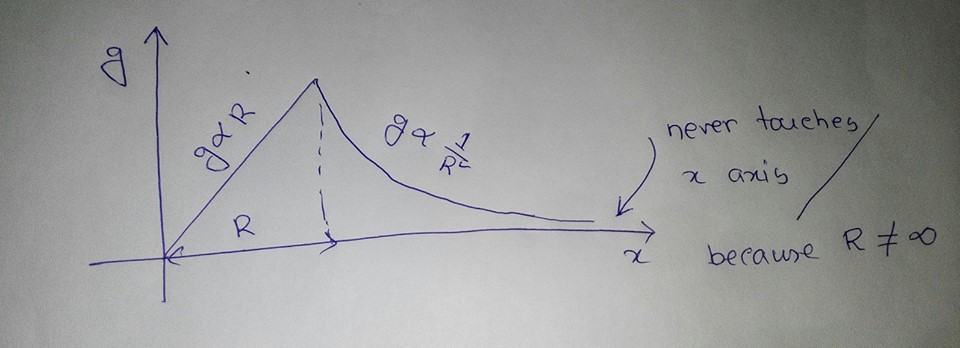 g
g ∝ R
g ∝ 1/R²
R
x
never touches
x axis
because R ≠ ∞